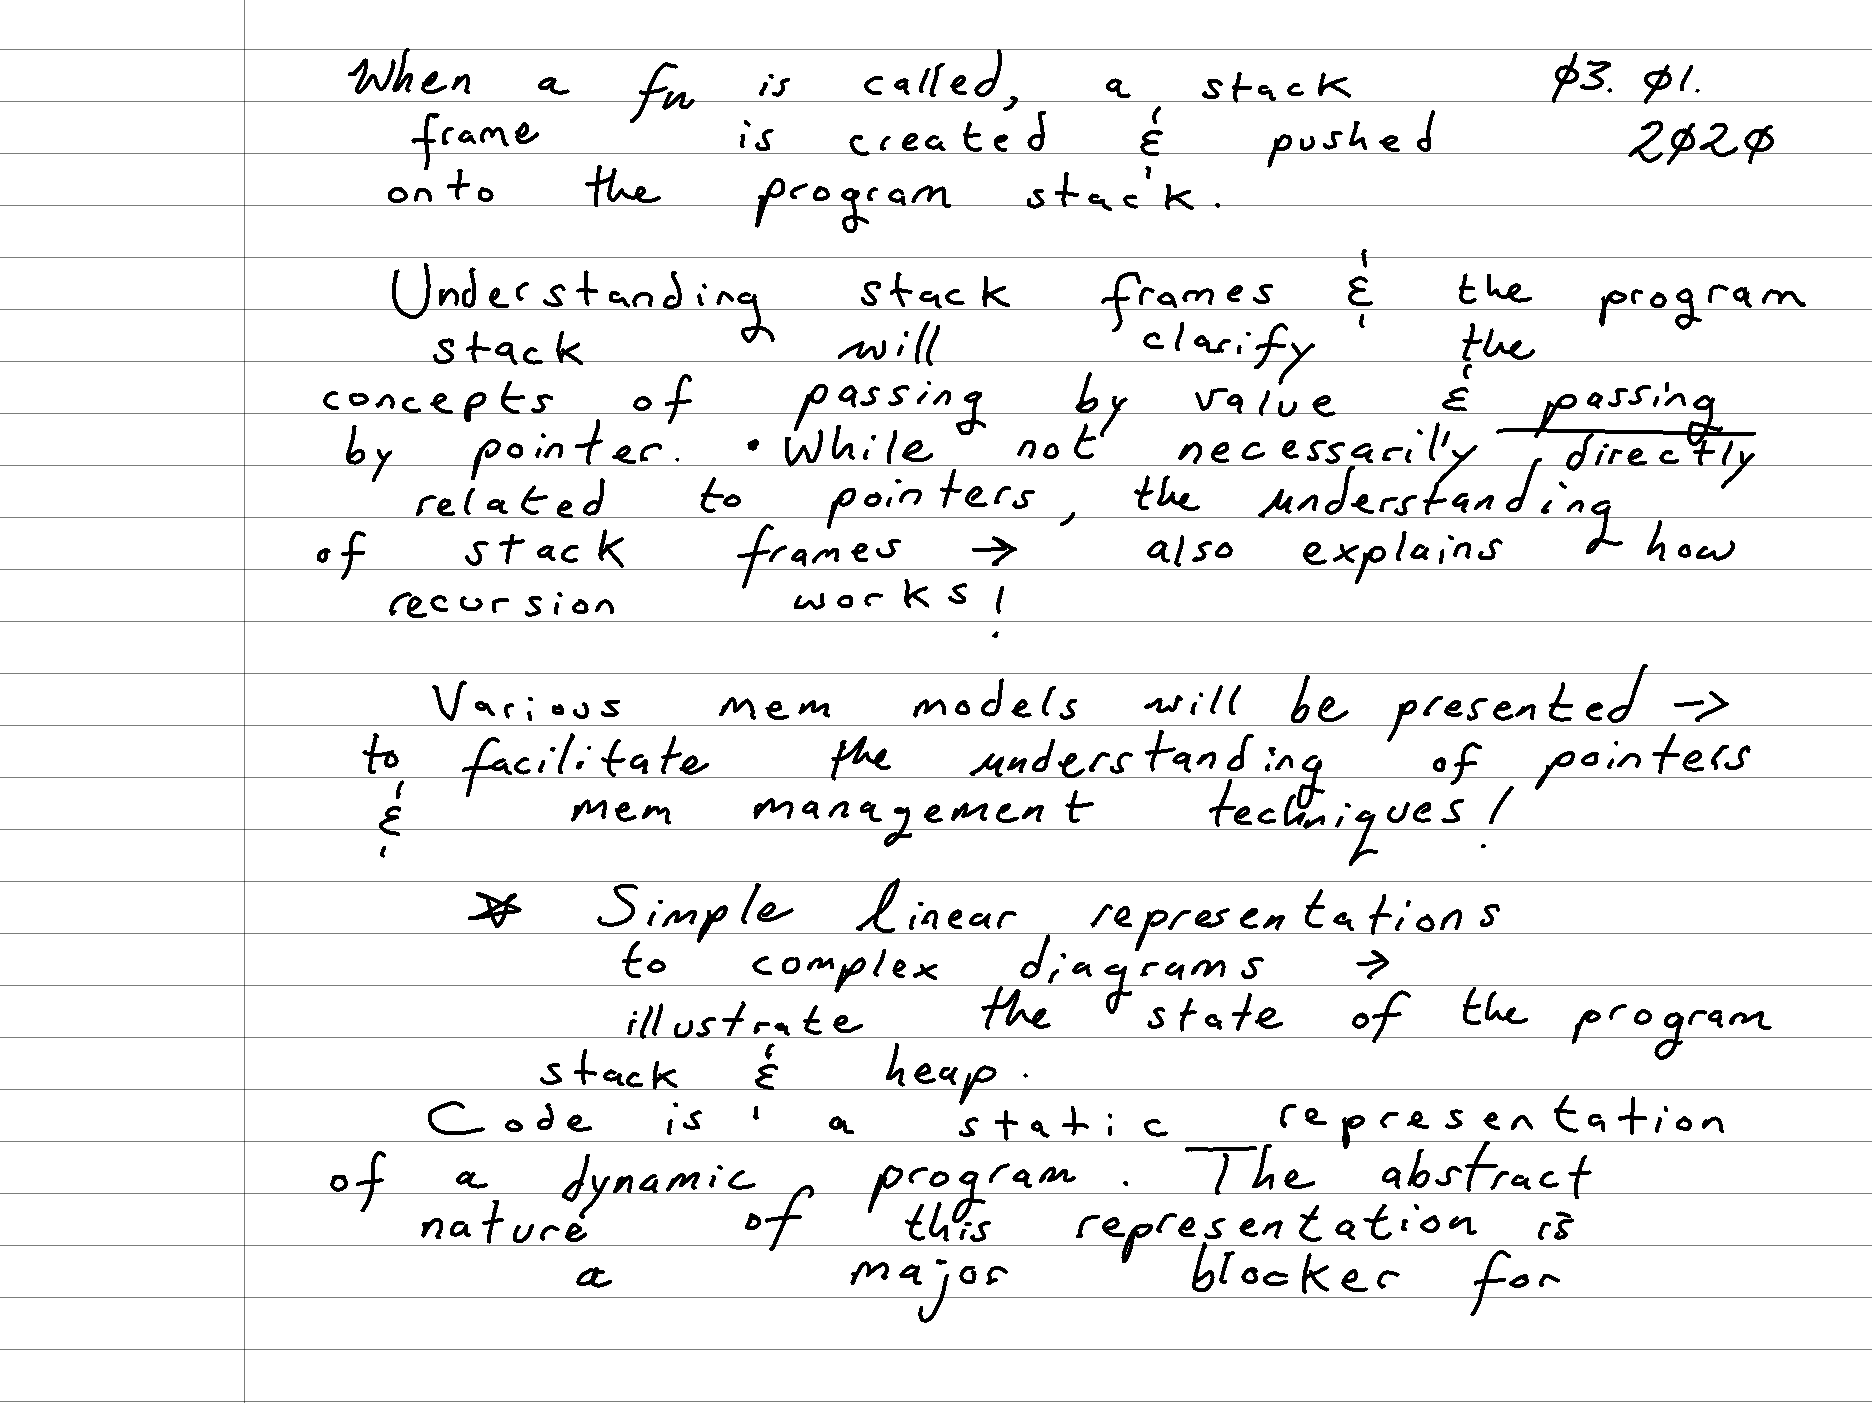 When a fn is called, a stack ø3. ø1.
frame is created & pushed 2ø2ø
onto the program stack.
Understanding stack frames & the program
stack will clarify the
concepts of passing by value & passing
by pointer. • While not necessarily directly
related to pointers, the understanding
of stack frames → also explains how
recursion works!
Various mem models will be presented →
to facilitate the understanding of pointers
& mem management techniques!
☆ Simple linear representations
to complex diagrams →
illustrate the state of the program
stack & heap.
Code is a static representation
of a dynamic program. The abstract
nature of this representation is
a major blocker for